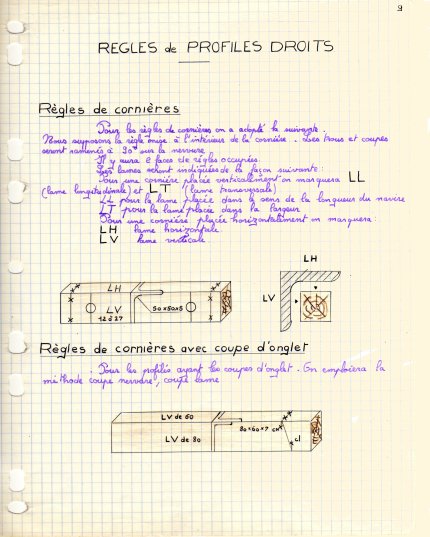 9
REGLES de PROFILES DROITS
Règles de cornières
Pour les règles de cornières on a adopté la suivante.
Nous supposons la règle mise à l'intérieur de la cornière. Les trous et coupes
seront ramenés à 90° sur la nervure.
Il y aura 2 faces de règles occupées.
Les lames seront indiquées de la façon suivante.
Pour une cornière placée verticalement on marquera LL
(lame longitudinale) et LT (lame transversale)
LL pour la lame placée dans le sens de la longueur du navire
LT pour la lame placée dans la largeur
Pour une cornière placée horizontalement on marquera:
LH lame horizontale.
LV lame verticale.
LH
LH
LV
LV
12 à 27
50x50x5
Règles de cornières avec coupe d'onglet
Pour les profilés ayant les coupes d'onglet. On emploiera la
méthode coupe nervure, coupe lame
LV de 60
80x60x7 cn
LV de 80
cl